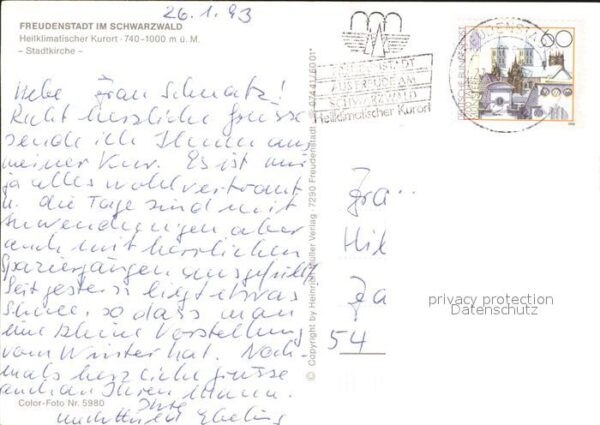 26.1.93
FREUDENSTADT IM SCHWARZWALD
Heilklimatischer Kurort · 740-1000 m ü. M.
- Stadtkirche -
Liebe Frau Schmatz!
Recht herzliche Grüsse
sende ich Ihnen aus
meiner Kur. Es ist mir
ja alles wohlvertraut
u. die Tage sind mit
Anwendungen aber
auch mit herrlichen
Spaziergängen ausgefüllt
Seit gestern liegt etwas
Schnee, so dass man
eine kleine Vorstellung
vom Winter hat. Noch-
mals herzliche Grüsse
auch an Ihren Mann.
Ihre
Ebeling
Color-Foto Nr. 5980
© Copyright by Heinrich Müller Verlag · 7290 Freudenstadt 07441/6001
FREUDENSTADT
SCHWARZWALD
Heilklimatischer Kurort
60
Fra
Hil
Za
54
privacy protection
Datenschutz